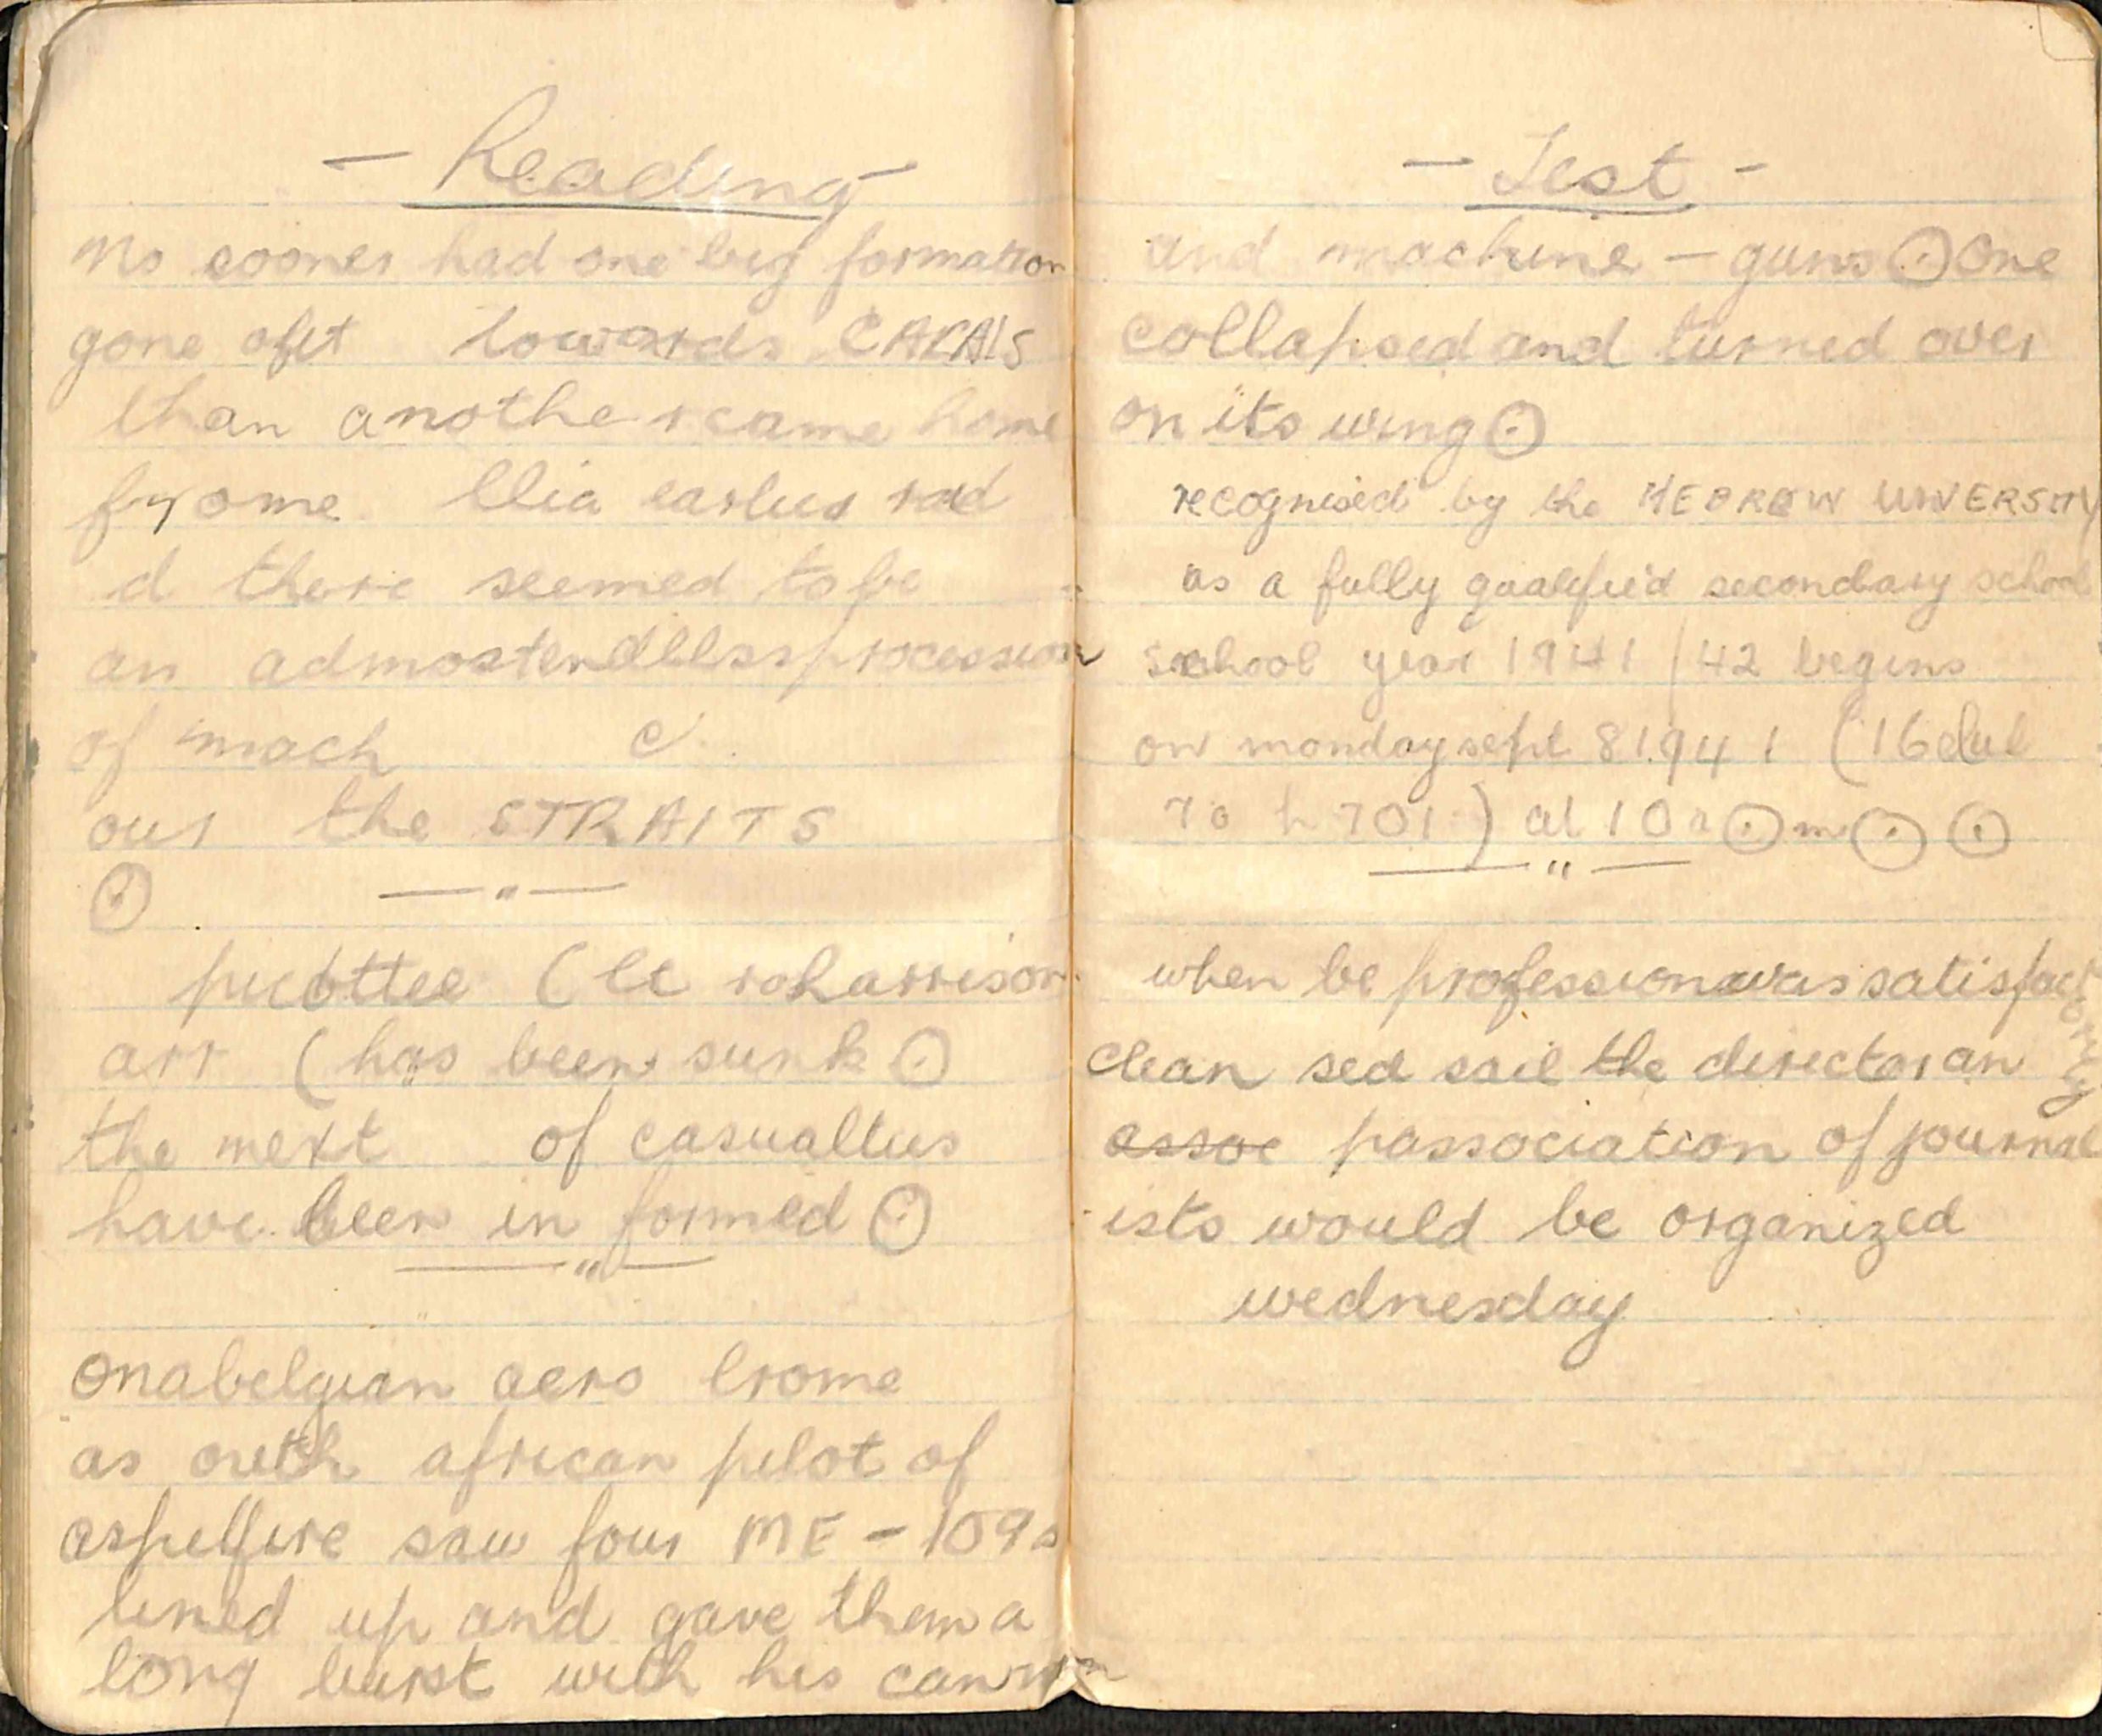 - Reading -
No sooner had one big formation
gone oft towards CALAIS
than anothe r came home
fr ome llia earlier
d there seemed to be
an admostendllssprocession
of mach e
our the STRAITS
⊙ — " —
(lt roharrison
arr (has been sunk ⊙
the mext of casualties
have been in formed ⊙
— " —
onabelgian aero lrome
as outh african pilot of
aspitfire saw four ME - 109s
lined up and gave them a
long burst with his cannon
- Test -
and machine - guns ⊙ One
collapsed and turned over
on its wing ⊙
recognised by the HEBREW UNVERSITY
as a fully qualified secondary school
school year 1941/42 begins
on monday sept 8 1941 (16 elul
701) at 10 a ⊙ m ⊙ ⊙
— " —
when be professionwas satisfactority
clean sed sail the director an
assoc passociation of journal
ists would be organized
wednesday